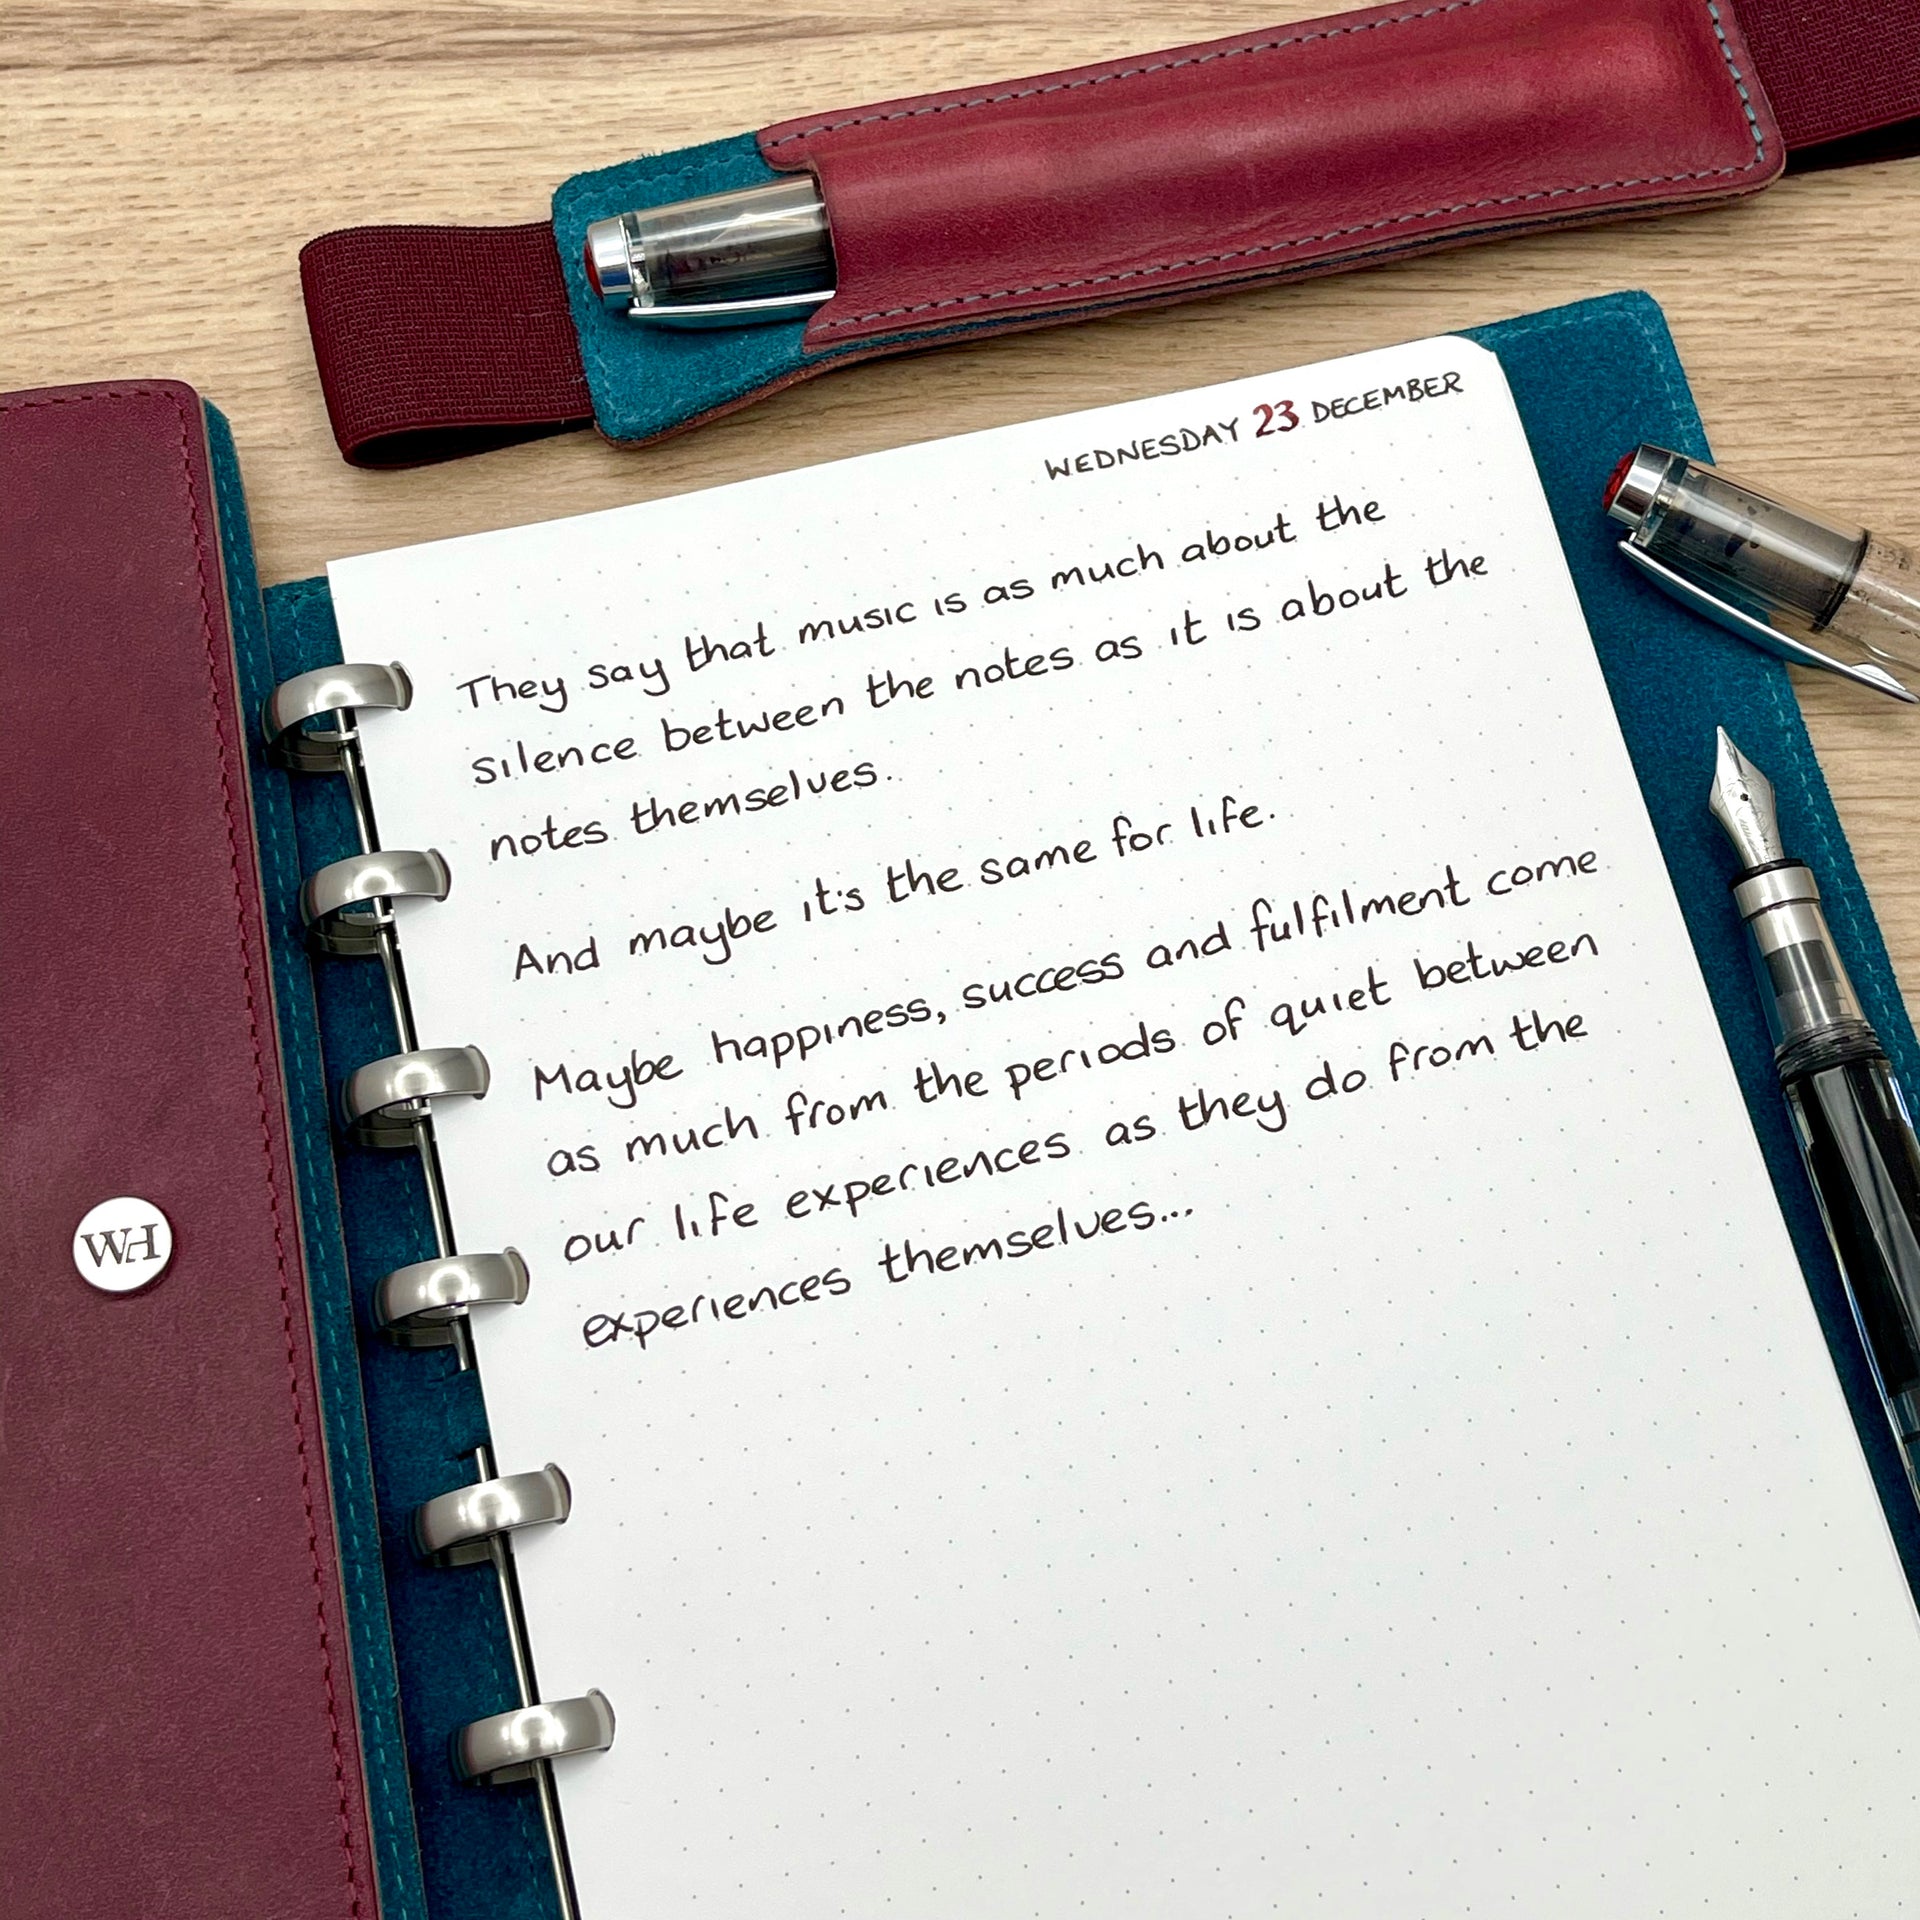 WEDNESDAY 23 DECEMBER
They say that music is as much about the
silence between the notes as it is about the
notes themselves.
And maybe it's the same for life.
Maybe happiness, success and fulfilment come
as much from the periods of quiet between
our life experiences as they do from the
experiences themselves...
WH